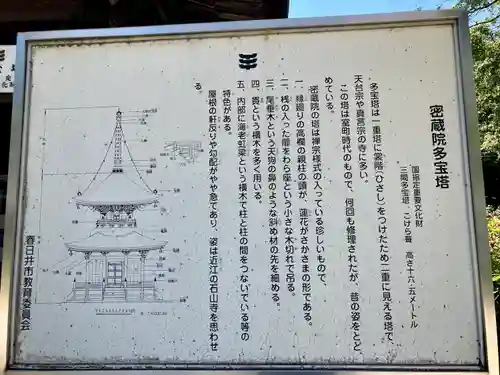 密蔵院多宝塔
国指定重要文化財
三間多宝塔、こけら葺 高さ十六・五メートル
多宝塔は一重塔に裳階（ひさし）をつけたため二重に見える塔で、
天台宗や真言宗の寺に多い。
この塔は室町時代のもので、何回も修理されたが、昔の姿をとど
めている。
密蔵院の塔は禅宗様式の入っている珍しいもので、
一、縁廻りの高欄の親柱の頭が、蓮花がさかさまの形である。
二、桟の入った扉をわら座という小さな木切れで吊る。
三、尾垂木という天狗の鼻のような斜め材の先を細める。
四、貫という横木を多く用いる。
五、内部に海老虹梁という横木で柱と柱の間をつないでいる等の
特色がある。
屋根の軒反りや勾配がやや急であり、姿は近江の石山寺を思わせ
る。
春日井市教育委員会